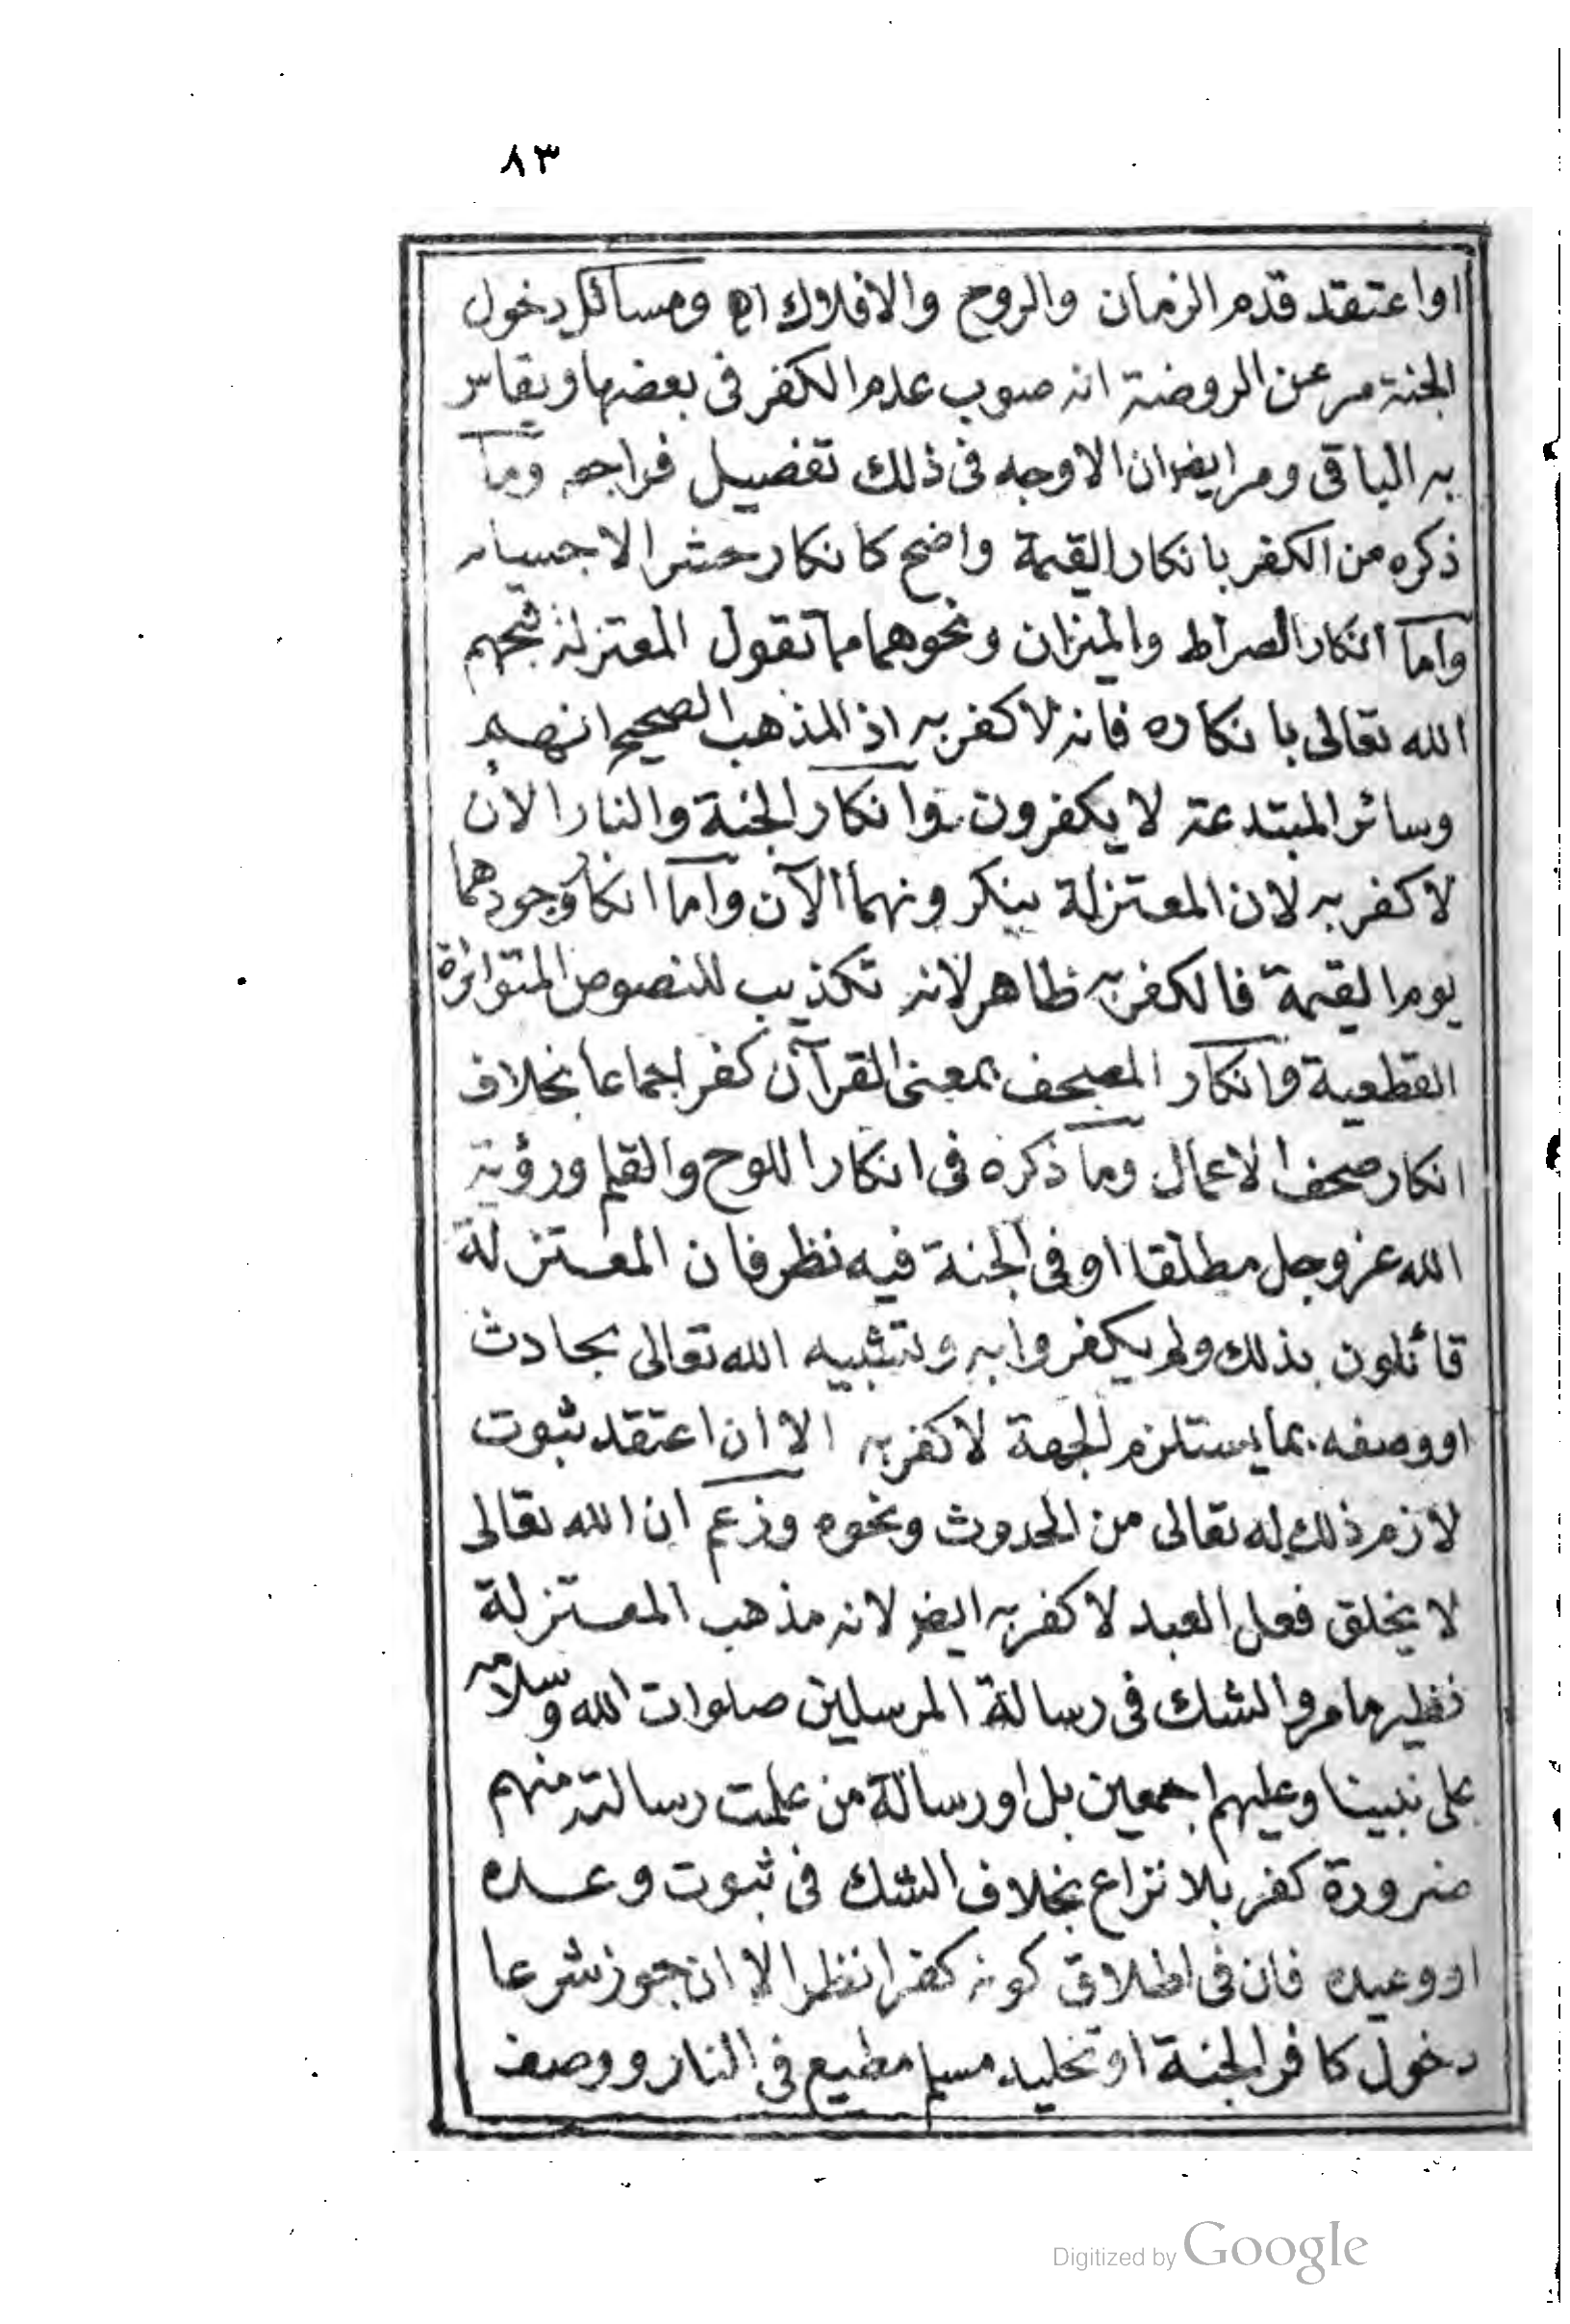 ٨٣
او اعتقد قدم الزمان والروح والافلاك اه ومسائل دخول
الجنة مر عن الروضة انه صوب عدم الكفر فى بعضها ويقاس
به الباقى ومر ايض ان الاوجه فى ذلك تفصيل فراجعه وما
ذكره من الكفر بانكار القيمة واضح كانكار حشر الاجسام
واما انكار الصراط والميزان ونحوهما مما تقول المعتزلة قبحهم
الله تعالى بانكاره فانه لا كفر به اذ المذهب الصحيح انهم
وسائر المبتدعة لا يكفرون وانكار الجنة والنار الآن
لا كفر به لان المعتزلة ينكرونهما الآن واما انكار وجودهما
يوم القيمة فالكفر به ظاهر لانه تكذيب للنصوص المتواترة
القطعية وانكار المصحف بمعنى القرآن كفر اجماعا بخلاف
انكار صحف الاعمال وما ذكره فى انكار اللوح والقلم ورؤية
الله عز وجل مطلقا او فى الجنة فيه نظر فان المعتزلة
قائلون بذلك ولم يكفروا به وتشبيه الله تعالى بحادث
او وصفه بما يستلزم الجهة لا كفر به الا ان اعتقد ثبوت
لازم ذلك له تعالى من الحدوث ونحوه وزعم ان الله تعالى
لا يخلق فعل العبد لا كفر به ايض لانه مذهب المعتزلة
نظير ما مر والشك فى رسالة المرسلين صلوات الله وسلامه
على نبينا وعليهم اجمعين بل او رسالة من علمت رسالته منهم
ضرورة كفر بلا نزاع بخلاف الشك فى ثبوت وعده
او وعيده فان فى اطلاق كونه كفرا نظرا الا ان جوز شرعا
دخول كافر الجنة او تخليد مسلم مطيع فى النار ووصف
Digitized by Google